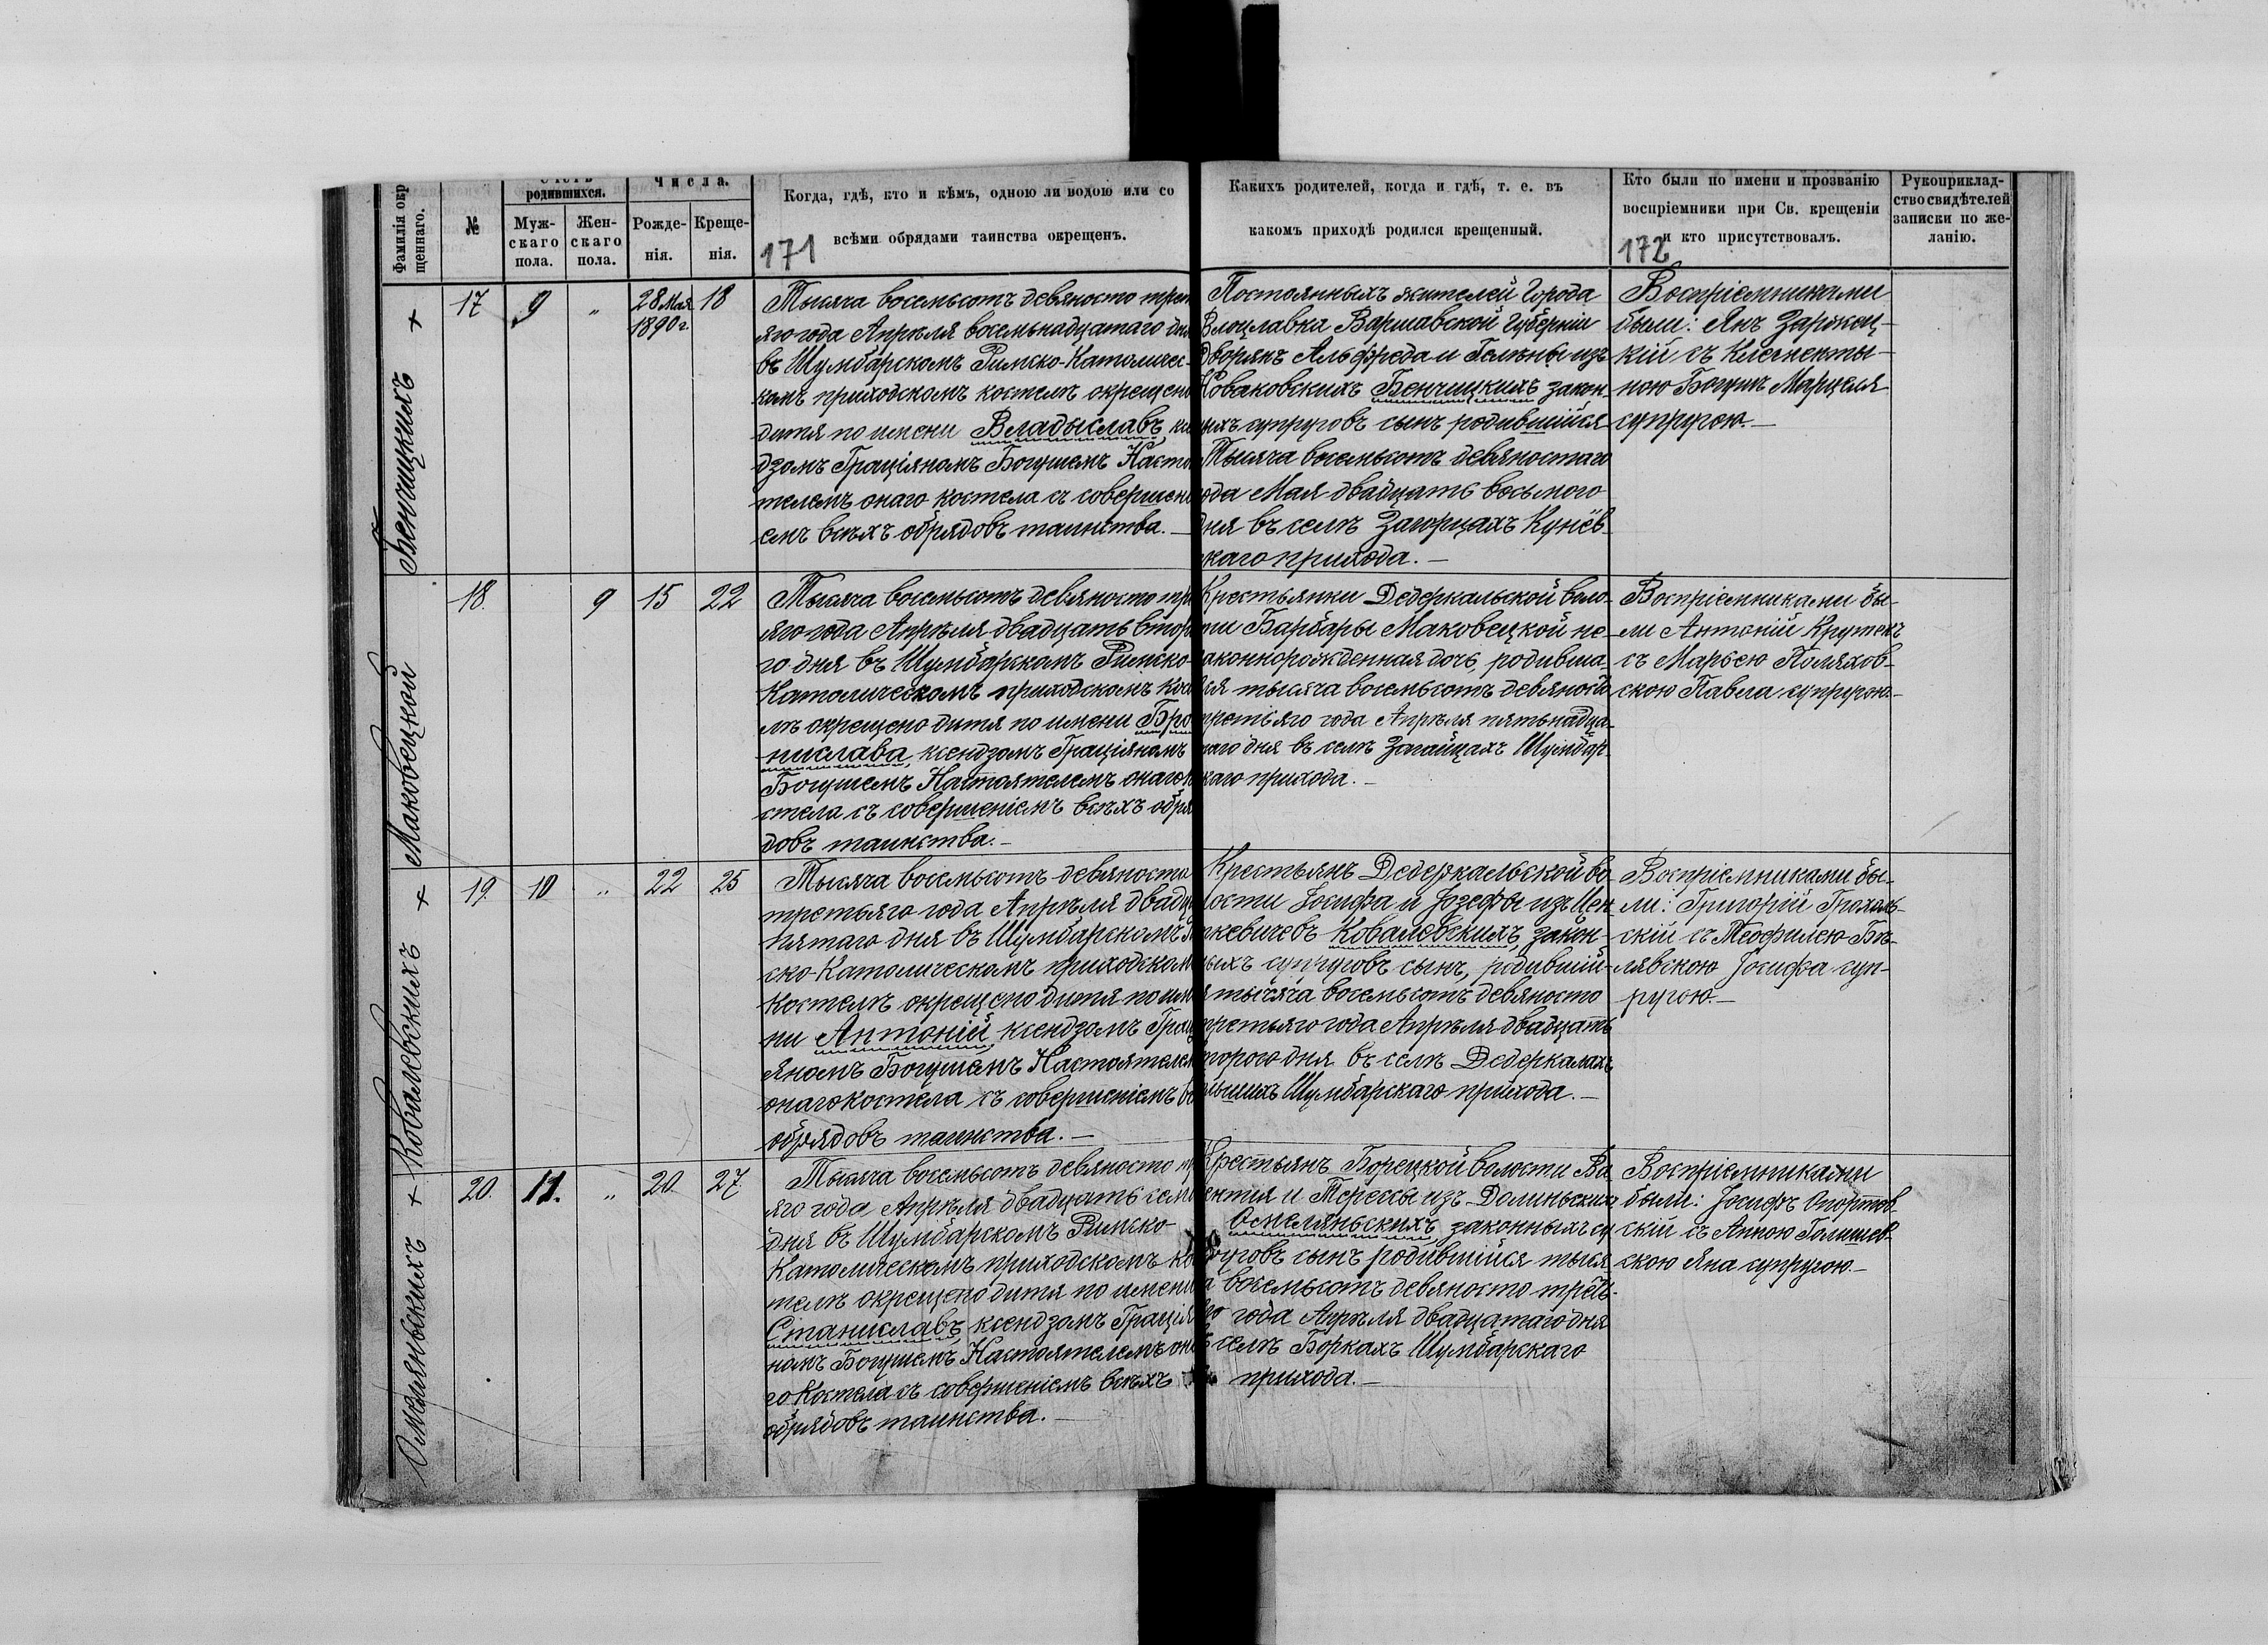 Фамилія окр
щеннаго.
№
родившихся.
Муж-
скаго
пола.
Жен-
скаго
пола.
Числа.
Рожде-
нія.
Креще-
нія.
Когда, гдѣ, кто и кѣмъ, одною ли водою или со
всѣми обрядами таинства окрещенъ.
171
Какихъ родителей, когда и гдѣ, т. е. въ
какомъ приходѣ родился крещенный.
Кто были по имени и прозванію
воспріемники при Св. крещеніи
и кто присутствовалъ.
172
Рукоприклад-
ство свидѣтелей
записки по же-
ланію.
Бенчицкихъ +
17
9
"
28 Мая
1890 г.
18
Тысяча восемьсотъ девяносто трет
яго года Апрѣля восемьнадцатаго дня
въ Шумбарскомъ Римско-Католичес-
комъ приходскомъ костелѣ окрещено
дитя по имени Владыславъ, ксен
дзомъ Граціяномъ Богушемъ Насто
телемъ онаго костела съ совершені
емъ всѣхъ обрядовъ таинства.—
Постоянныхъ жителей Города
Влоцлавка Варшавской Губерніи
Дворянъ Альфреда и Гелены изъ
Новаковскихъ Бенчицкихъ закон-
ныхъ супруговъ сынъ родившійся
Тысяча восемьсотъ девяностаго
года Мая двадцать восьмого
дня въ селѣ Загорцахъ Кунёв-
скаго прихода.—
Воспріемниками
были: Янъ Заржец-
кій съ Клементы-
ною Богушъ Марцеля
супругою.—
Маковецкой
18.
9
15
22
Тысяча восемьсотъ девяносто тре
яго года Апрѣля двадцать второ
го дня въ Шумбарскомъ Римско-
Католическомъ приходскомъ кос
лѣ окрещено дитя по имени Бро
нислава, ксендзомъ Граціяномъ
Богушемъ Настоятелемъ онаго к
стела съ совершеніемъ всѣхъ обря
довъ таинства.—
Крестьянки Дедеркальской воло-
сти Барбары Маковецкой не-
законнорожденная дочь, родивша-
яся тысяча восемьсотъ девяносто
третьяго года Апрѣля пятьнадца-
таго дня въ селѣ Загайцахъ Шумбар-
скаго прихода.—
Воспріемниками бы-
ли Антоній Крутекъ
съ Марьею Поляхов-
скою Павла супругою.—
Ковалевскихъ +
19.
10
"
22
25
Тысяча восемьсотъ девяносто
третьяго года Апрѣля двадц
пятаго дня въ Шумбарскомъ
ско-Католическомъ приходском
Костелѣ окрещено дитя по име
ни Антоній, ксендзомъ Граці
яномъ Богушемъ Настоятелем
онаго костела съ совершеніемъ вс
обрядовъ таинства.—
Крестьянъ Дедеркальской во-
лости Іосифа и Іозефы изъ Цен-
кевичевъ Ковалевскихъ, закон-
ныхъ супруговъ сынъ, родившій-
ся тысяча восемьсотъ девяносто
третьяго года Апрѣля двадцать
второго дня въ селѣ Дедеркалахъ
Шумбарскаго прихода.—
Воспріемниками бы-
ли: Григорій Грохоль-
скій съ Теофилею Бѣ-
лявскою Іосифа суп-
ругою.—
Омелянскихъ +
20.
11.
"
20.
27
Тысяча восемьсотъ девяносто тр
яго года Апрѣля двадцать семь
дня въ Шумбарскомъ Римско-
Католическомъ приходскомъ ко
телѣ окрещено дитя по имени
Станиславъ, ксендзомъ Граціа
номъ Богушемъ Настоятелемъ она
го Костела съ совершеніемъ всѣхъ
обрядовъ таинства.—
Крестьянъ Борецкой волости
и Терезы изъ Долинскихъ
Омелянскихъ, законныхъ су
пруговъ сынъ родившійся тыся
ча восемьсотъ девяносто треть-
яго года Апрѣля двадцатаго дня
въ селѣ Боркахъ Шумбарскаго
прихода.—
Воспріемниками
были: Іосифъ
скій съ Анною Голишев-
скою Яна супругою.—